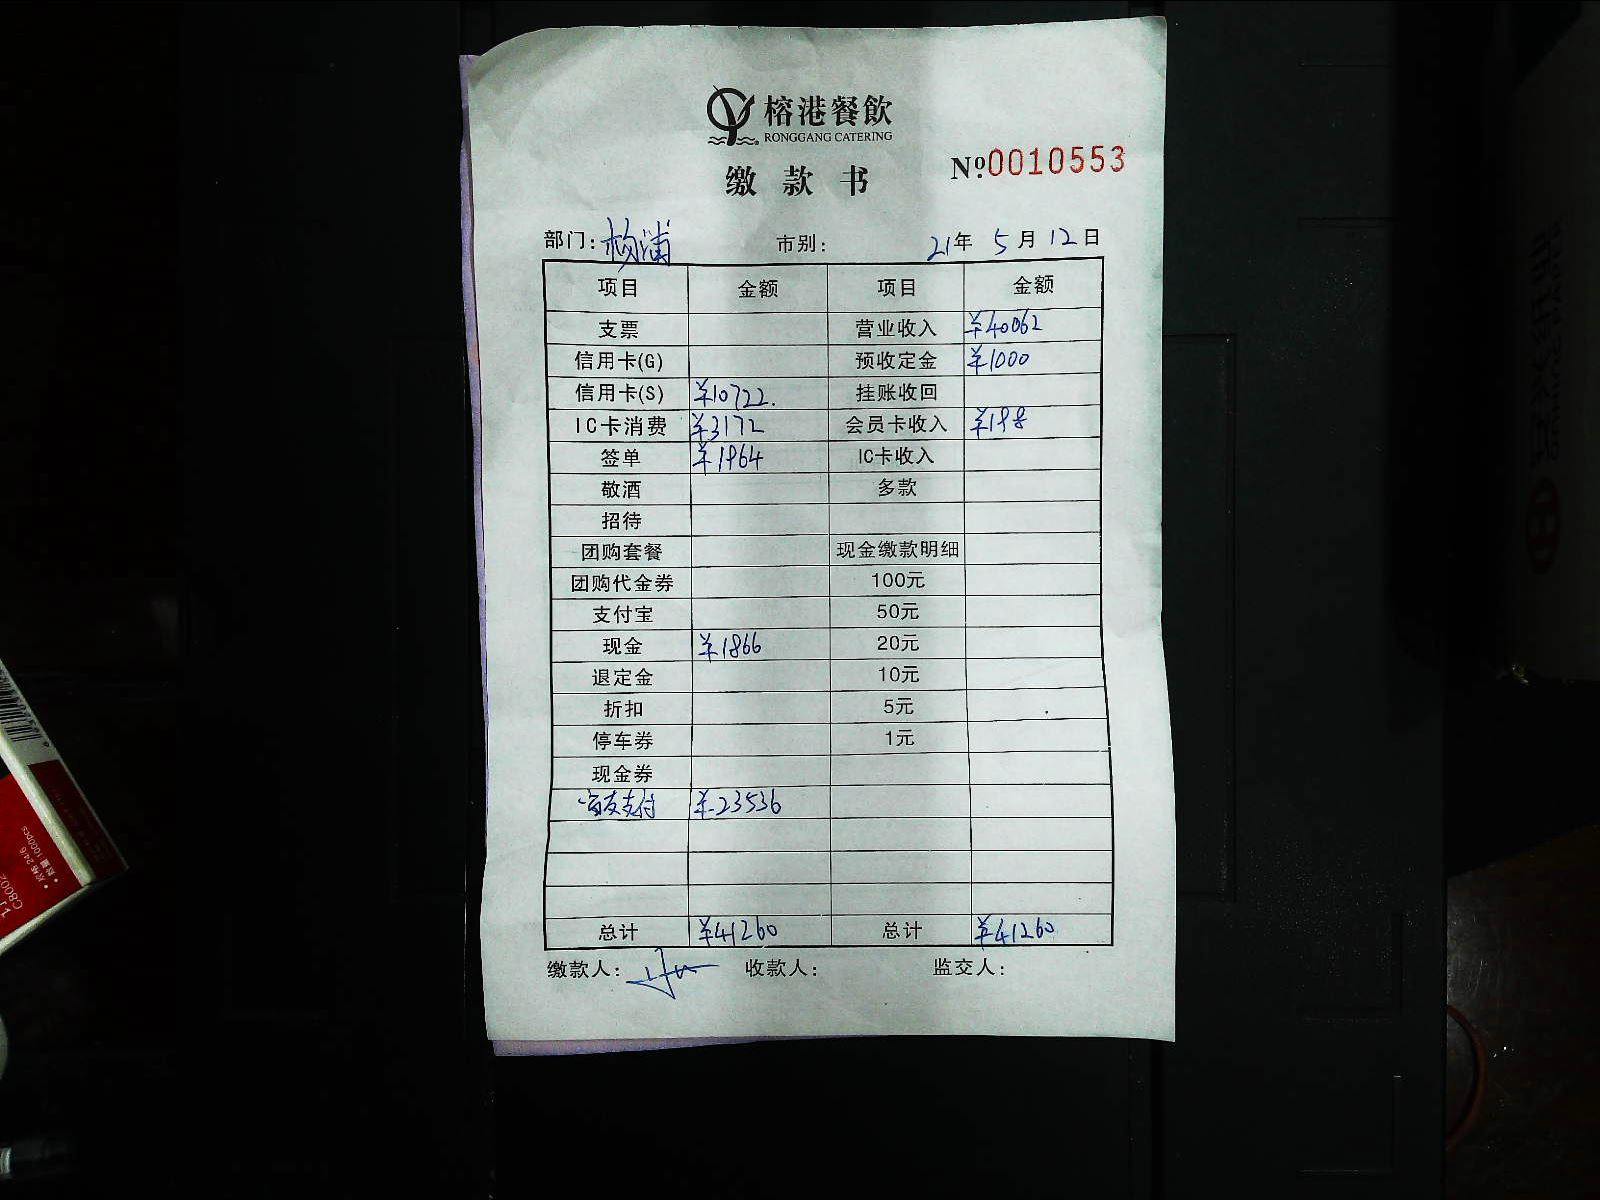 榕港餐飲
RONGGANG CATERING
缴款书
№0010553
部门: 杨浦 市别: 21年 5月 12日
项目 金额 项目 金额
支票 营业收入 ¥40062
信用卡(G) 预收定金 ¥1000
信用卡(S) ¥10722. 挂账收回
IC卡消费 ¥3172 会员卡收入 ¥198
签单 ¥1964 IC卡收入
敬酒 多款
招待
团购套餐 现金缴款明细
团购代金券 100元
支付宝 50元
现金 ¥1866 20元
退定金 10元
折扣 5元
停车券 1元
现金券
富友支付 ¥23536
总计 ¥41260 总计 ¥41260
缴款人: 收款人: 监交人:
规格 24/6
数量 1000pcs